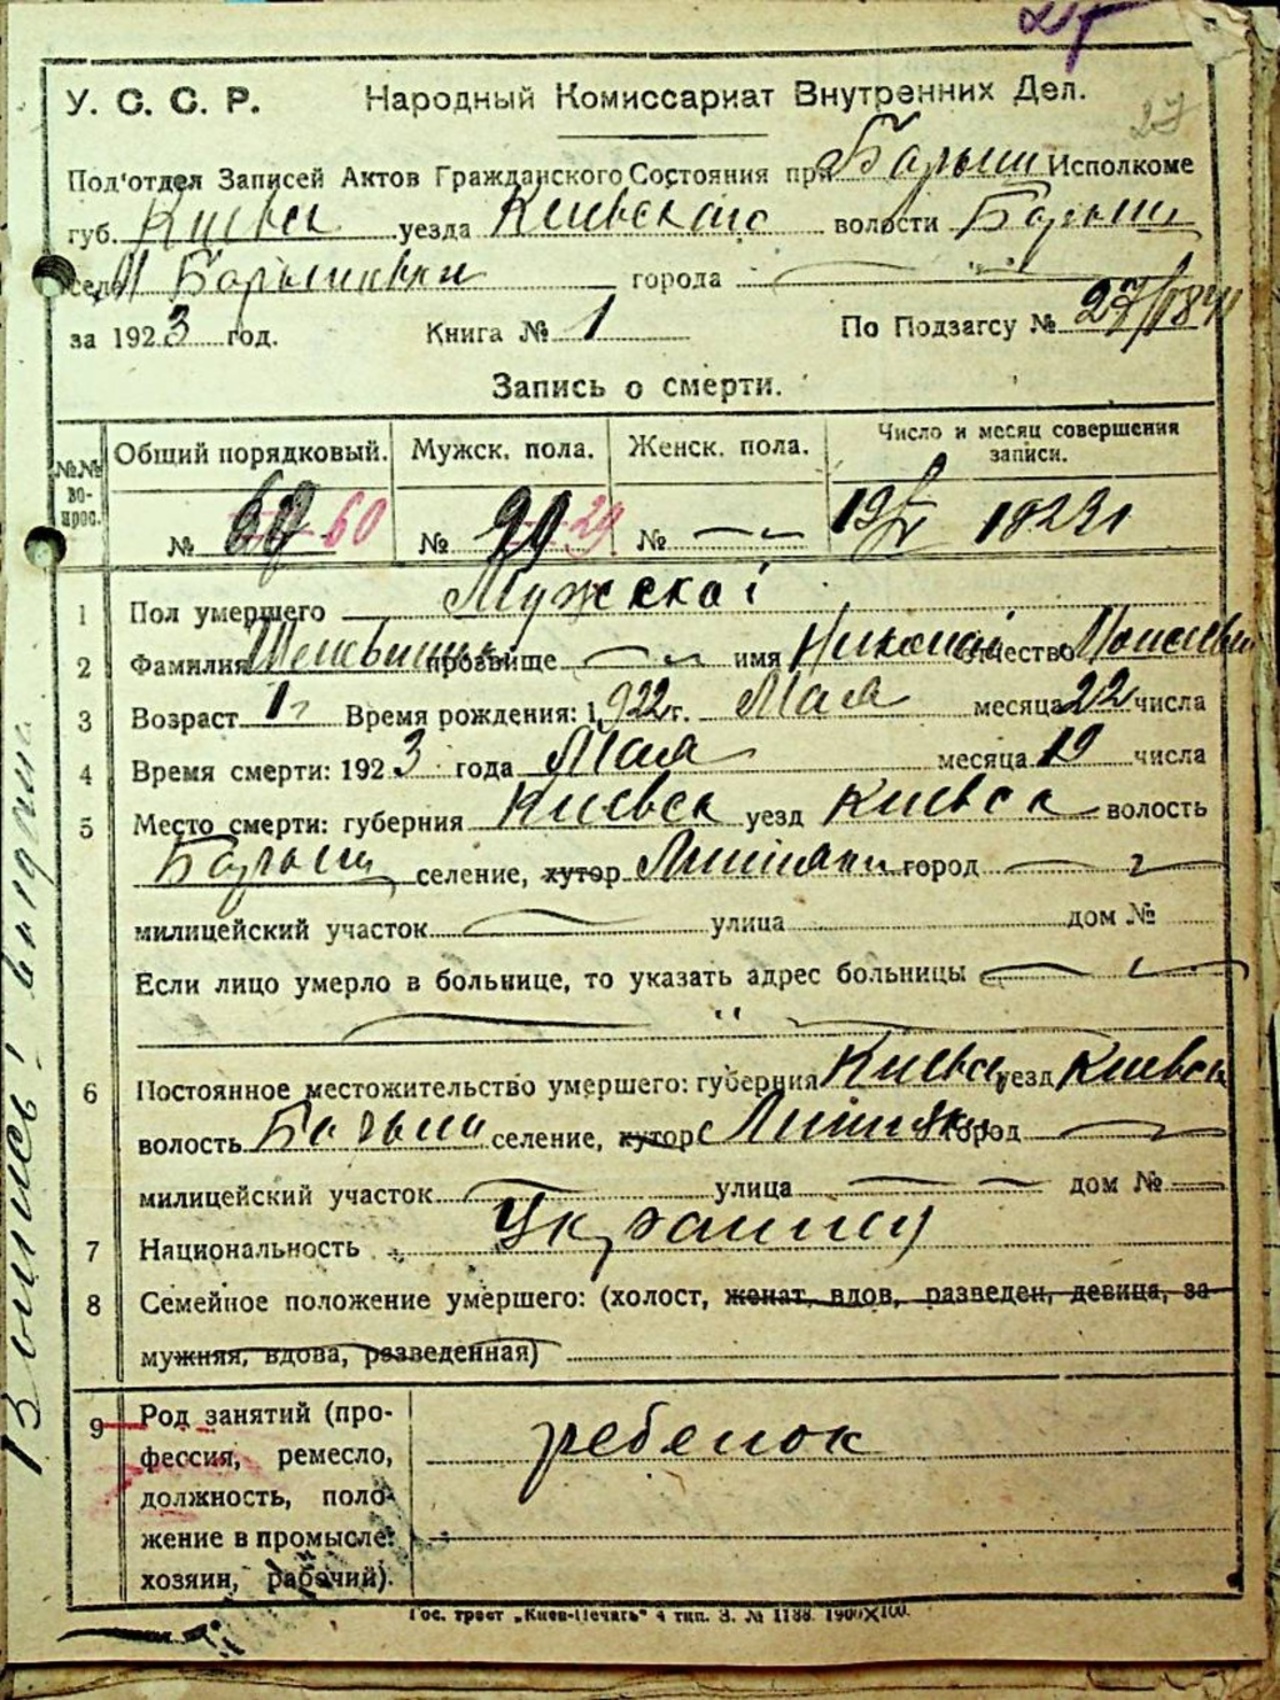 27
У. С. С. Р. Народный Комиссариат Внутренних Дел.
27
Под'отдел Записей Актов Гражданского Состояния при Барыш Исполкоме
губ. Киевск уезда Киевского волости Барыш
села М Барышевки города
за 1923 год. Книга № 1 По Подзагсу № 27/
Запись о смерти.
№№ вопрос. Общий порядковый. Мужск. пола. Женск. пола. Число и месяц совершения записи.
№ 60 № 29 № 19/V 1923
1 Пол умершего Мужской
2 Фамилия прозвище имя Николай отчество Моисеевич
3 Возраст 1 г Время рождения: 1922 г. Мая месяца 22 числа
4 Время смерти: 1923 года Мая месяца 19 числа
5 Место смерти: губерния Киевск уезд Киевск волость
Барыш селение, хутор город
милицейский участок улица дом №
Если лицо умерло в больнице, то указать адрес больницы
6 Постоянное местожительство умершего: губерния Киевск уезд Киевск
волость Барыш селение, хутор город
милицейский участок улица дом №
7 Национальность Украинец
8 Семейное положение умершего: (холост, женат, вдов, разведен, девица, за-
мужняя, вдова, разведенная)
9 Род занятий (про-
фессия, ремесло,
должность, поло-
жение в промысле:
хозяин, рабочий).
ребенок
Гос. трест „Киев-Печать" 4 тип. З. № 1188. 1900×100.
Выпись выдана